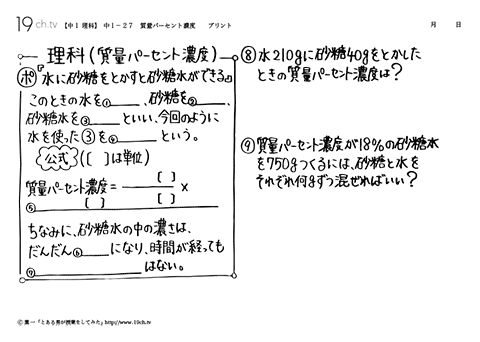 19ch.tv 【中1理科】 中1-27 質量パーセント濃度 プリント 月 日
理科(質量パーセント濃度)
ポ『水に砂糖をとかすと砂糖水ができる』
このときの水を①____、砂糖を②____、
砂糖水を③____といい、今回のように
水を使った③を④____という。
公式([ ]は単位)
質量パーセント濃度=[ ]/[ ]×
⑤
ちなみに、砂糖水の中の濃さは、
だんだん⑥____になり、時間が経っても
⑦____はない。
⑧水210gに砂糖40gをとかした
ときの質量パーセント濃度は?
⑨質量パーセント濃度が18%の砂糖水
を750gつくるには、砂糖と水を
それぞれ何gずつ混ぜればいい?
©葉一「とある男が授業をしてみた」http://www.19ch.tv